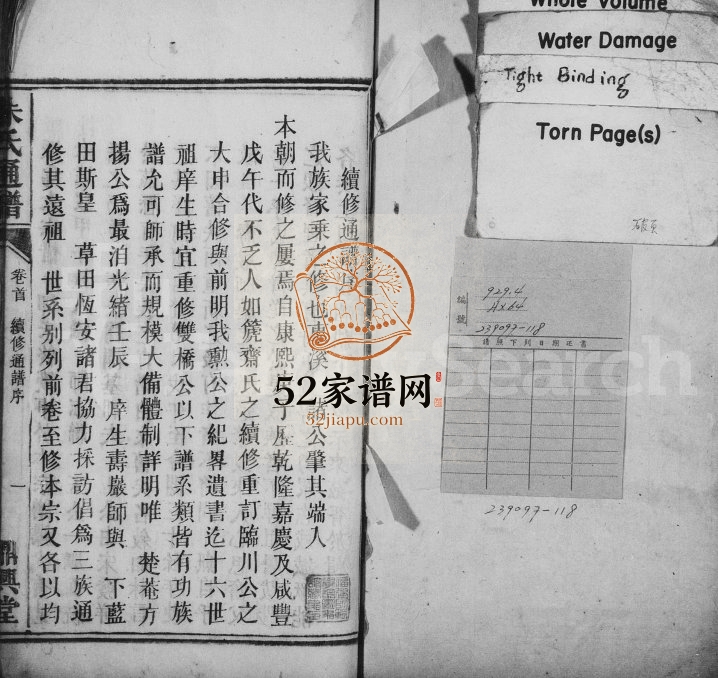 Whole Volume
Water Damage
Tight Binding
Torn Page(s)
破頁
編號
929.4
239097-118
請照下列日期還書
239097-118
續修通譜序
我族家乘之修也 溪 公肇其端入
本朝而修之屢焉自康熙 丁 歷乾隆嘉慶及咸豐
戊午代不乏人如篪齋氏之續修重訂臨川公之
大申合修與前明我勲公之紀畧遺書迄十六世
祖庠生時宜重修雙橋公以下譜系類皆有功族
譜允可師承而規模大備體制詳明唯 楚菴方
揚公爲最洎光緒壬辰 庠生壽巖師與 下藍
田斯皇 草田恆安諸君協力採訪倡爲三族通
修其遠祖 世系别列前卷至修本宗又各以均
氏通譜
卷首 續修通譜序
一
鼎興堂
52家谱网
52jiapu.com